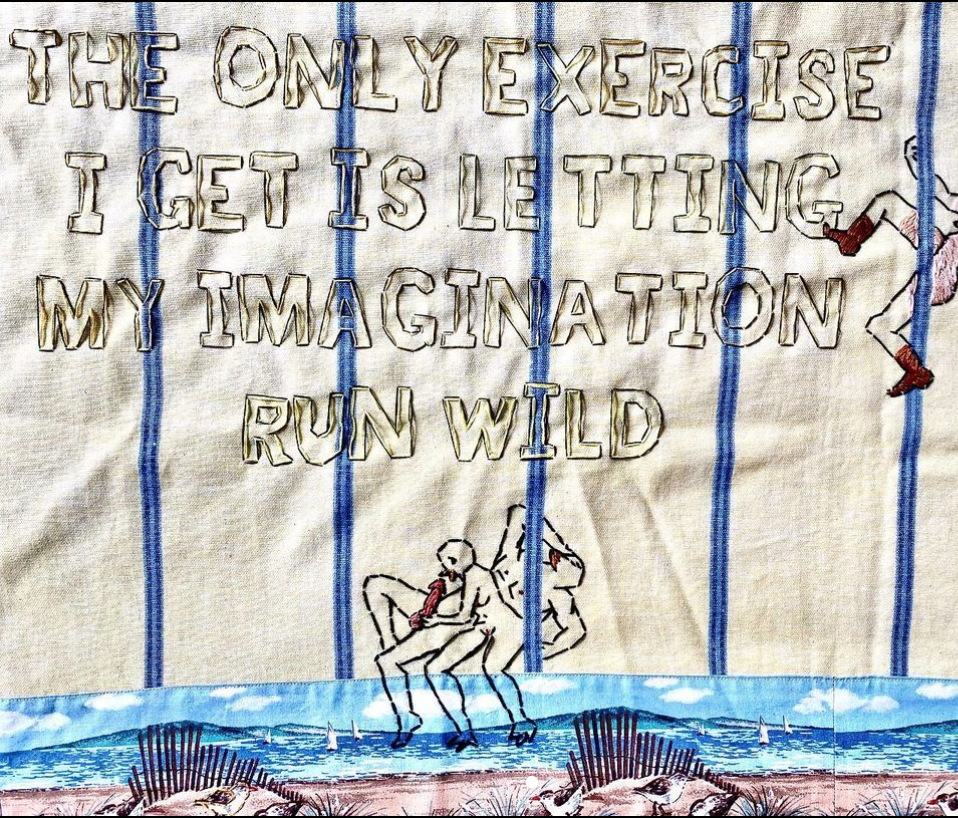 THE ONLY EXERCISE
I GET IS LETTING
MY IMAGINATION
RUN WILD